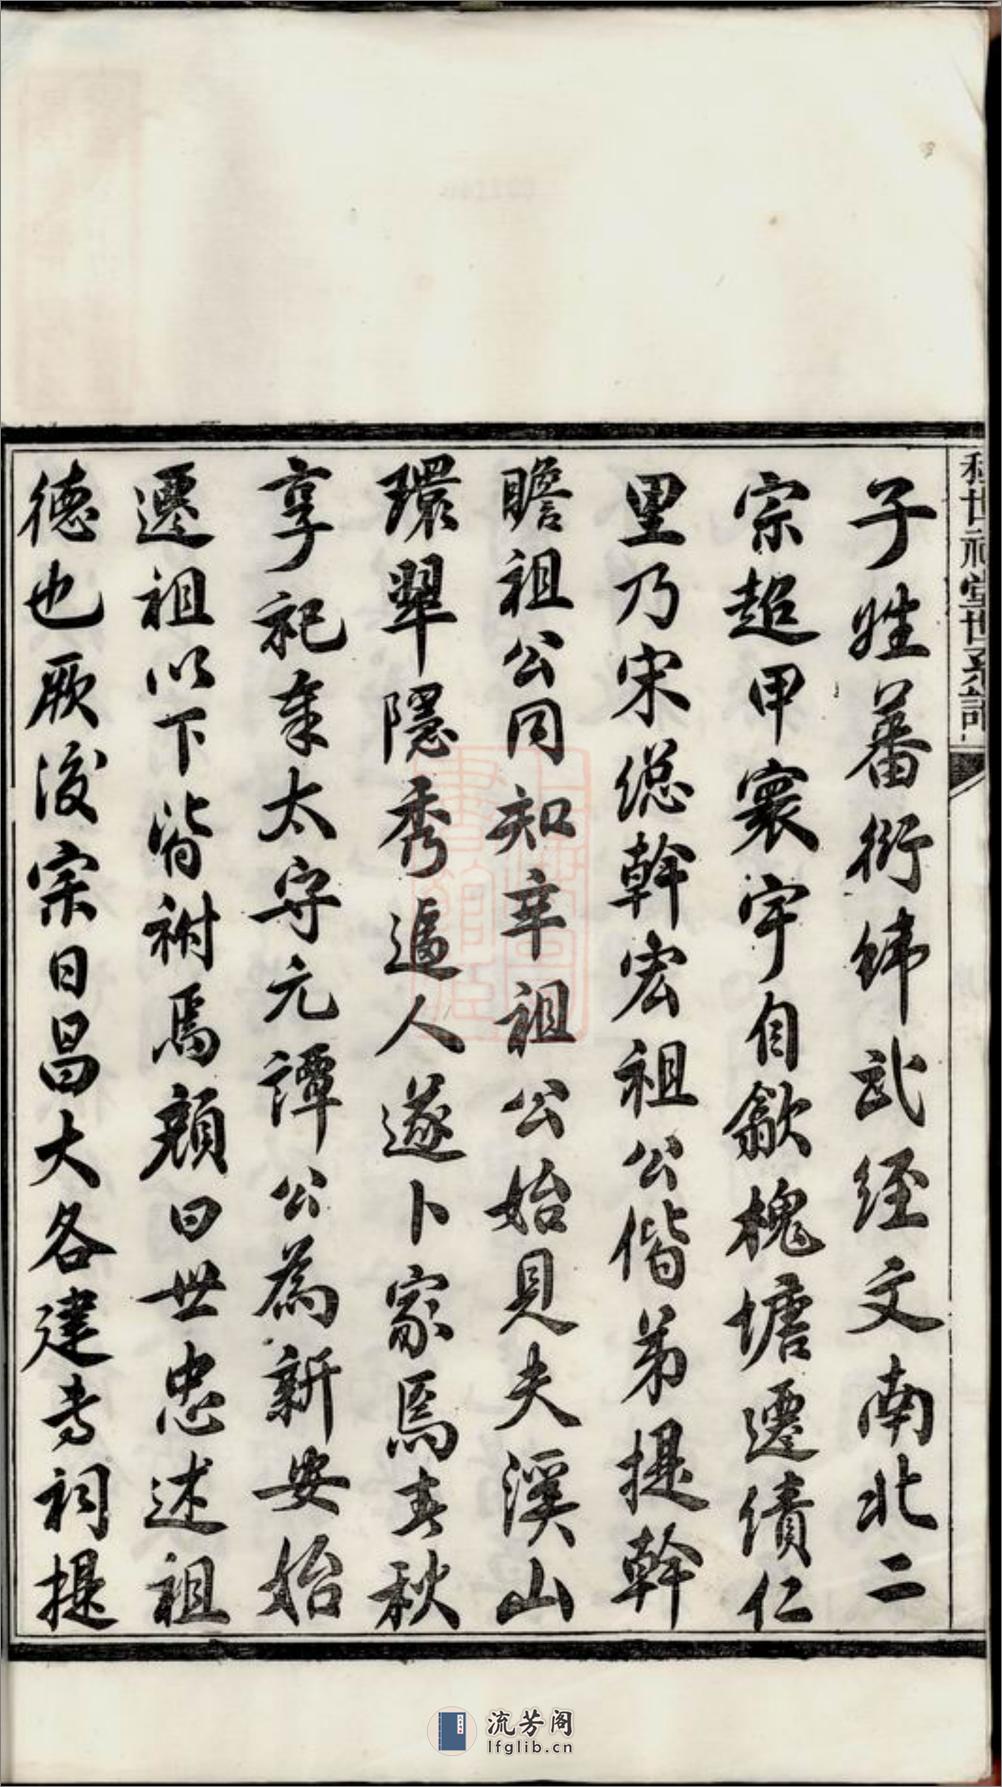 程世祠堂世系記
子姓蕃衍緯武经文南北二
宗超甲寰宇自歙槐塘遷績仁
里乃宋總幹宏祖公偕弟提幹
瞻祖公同知辛祖公始見夫溪山
環翠隱秀逼人遂卜家焉春秋
享祀奉太守元譚公為新安始
遷祖以下皆祔焉顏曰世忠述祖
德也厥後宗日昌大各建專祠提
流芳阁
lfglib.cn